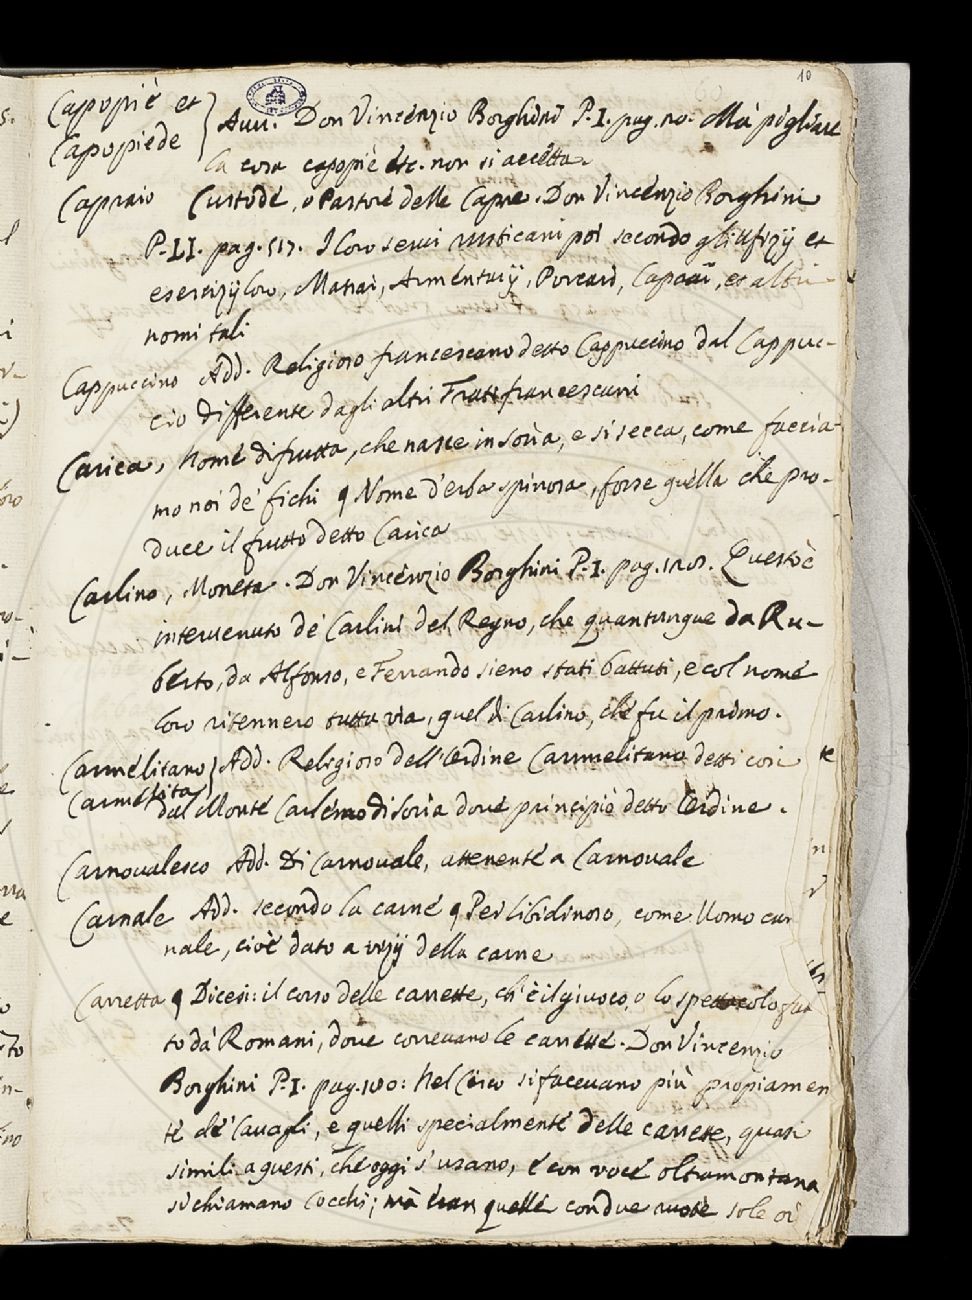 10
Capopiè et
Capopiede
Avv. Don Vincenzio Borghini P. I. pag. Ma pigliare
la cosa capopiè etc. non si accetta.
Capraio Custode, o Pastore delle Capre. Don Vincenzio Borghini
P. I. pag. 517. I loro servi rusticani poi secondo gli ufizij et
esercizij loro, Armentarij, Porcari, Caprari, et altri
nomi tali
Cappuccino Add. Religioso francescano detto Cappuccino dal Cappuc-
cio differente dagli altri Frati francescani
Carica, Nome di frutta, che nasce in Soria, e si secca, come faccia-
mo noi de' fichi q Nome d'erba spinosa, forse quella che pro-
duce il frutto detto Carica
Carlino, Moneta. Don Vincenzio Borghini P. I. pag. Questo è
intervenuto de' Carlini del Regno, che quantunque da Ru-
berto, da Alfonso, e Ferrando sieno stati battuti, e col nome
loro ritennero tutta via, quel di Carlino, che fu il primo.
Carmelitano Add. Religioso dell'Ordine Carmelitano detti così
Carmelita
dal Monte Carlemo di Soria dove principiò detto Ordine.
Carnovalesco Add. Di Carnovale, attenente a Carnovale
Carnale Add. secondo la carne q Per libidinoso, come Uomo car
nale, cioè dato a vizij della carne
Carretta q Dicesi: il corso delle carrette, ch'è il giuoco, o lo spettacolo fat
to da' Romani, dove correvano le carrette. Don Vincenzio
Borghini P. I. pag. 180: Nel Circo si facevano più propiamen
te de' Cavagli, e quelli specialmente delle carrette, quasi
simili a questi, che oggi s'usano, e con voce oltramontana
si chiamano Cocchi; ma eran quelle con due ruote sole